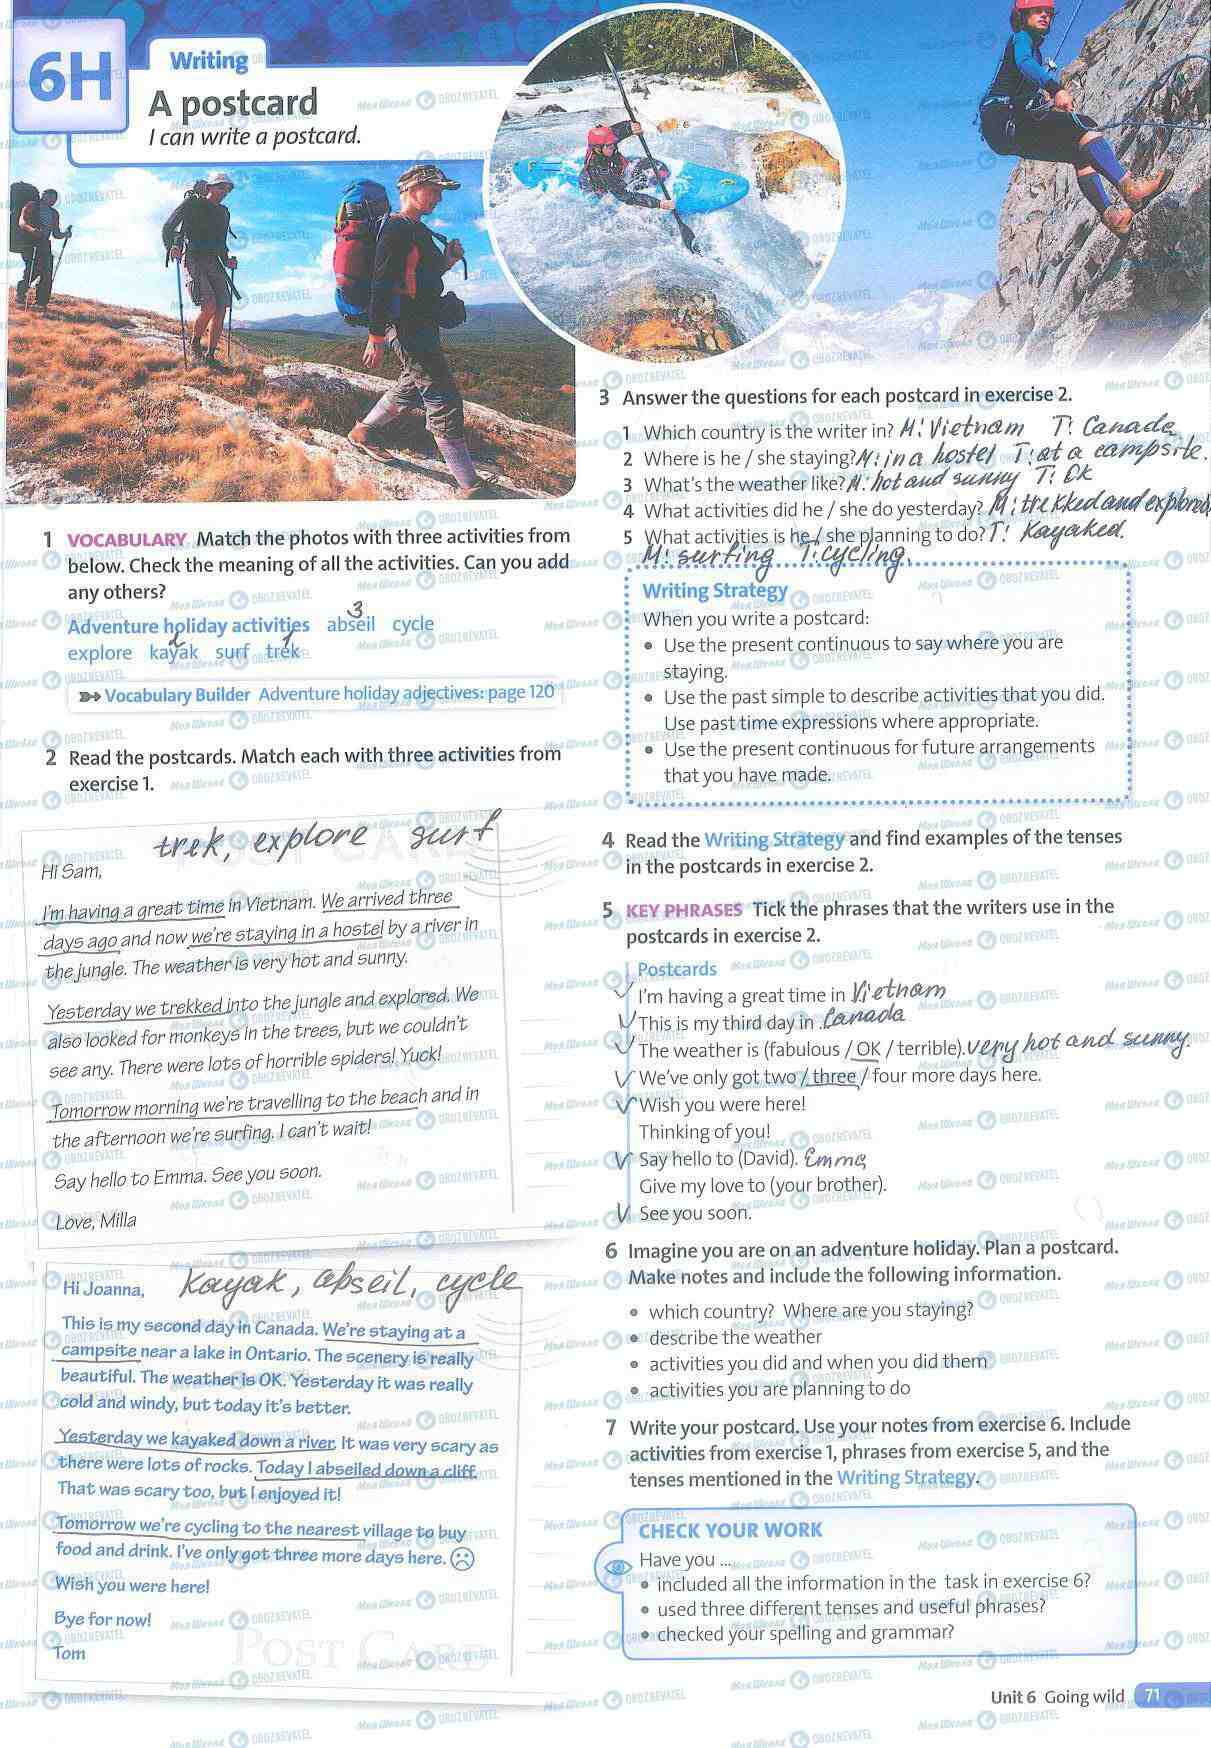 6H
Writing
A postcard
I can write a postcard.
1 VOCABULARY Match the photos with three activities from
below. Check the meaning of all the activities. Can you add
any others?
3
Adventure holiday activities abseil cycle
2 1
explore kayak surf trek
Vocabulary Builder Adventure holiday adjectives: page 120
2 Read the postcards. Match each with three activities from
exercise 1.
trek, explore surf
Hi Sam,
I'm having a great time in Vietnam. We arrived three
days ago and now we're staying in a hostel by a river in
the jungle. The weather is very hot and sunny.
Yesterday we trekked into the jungle and explored. We
also looked for monkeys in the trees, but we couldn't
see any. There were lots of horrible spiders! Yuck!
Tomorrow morning we're travelling to the beach and in
the afternoon we're surfing. I can't wait!
Say hello to Emma. See you soon.
Love, Milla
kayak, abseil, cycle
Hi Joanna,
This is my second day in Canada. We're staying at a
campsite near a lake in Ontario. The scenery is really
beautiful. The weather is OK. Yesterday it was really
cold and windy, but today it's better.
Yesterday we kayaked down a river. It was very scary as
there were lots of rocks. Today I abseiled down a cliff.
That was scary too, but I enjoyed it!
Tomorrow we're cycling to the nearest village to buy
food and drink. I've only got three more days here.
Wish you were here!
Bye for now!
Tom
POST CARD
3 Answer the questions for each postcard in exercise 2.
1 Which country is the writer in? M: Vietnam T: Canada
2 Where is he / she staying? M: in a hostel T: at a campsite.
3 What's the weather like? M: hot and sunny T: Ok
4 What activities did he / she do yesterday? M: trekked and explored
5 What activities is he / she planning to do? T: Kayaked.
M: surfing T: cycling.
Writing Strategy
When you write a postcard:
• Use the present continuous to say where you are
staying.
• Use the past simple to describe activities that you did.
Use past time expressions where appropriate.
• Use the present continuous for future arrangements
that you have made.
4 Read the Writing Strategy and find examples of the tenses
in the postcards in exercise 2.
5 KEY PHRASES Tick the phrases that the writers use in the
postcards in exercise 2.
Postcards
I'm having a great time in Vietnam
This is my third day in Canada
The weather is (fabulous / OK / terrible). very hot and sunny.
We've only got two / three / four more days here.
Wish you were here!
Thinking of you!
Say hello to (David). Emma
Give my love to (your brother).
See you soon.
6 Imagine you are on an adventure holiday. Plan a postcard.
Make notes and include the following information.
• which country? Where are you staying?
• describe the weather
• activities you did and when you did them
• activities you are planning to do
7 Write your postcard. Use your notes from exercise 6. Include
activities from exercise 1, phrases from exercise 5, and the
tenses mentioned in the Writing Strategy.
CHECK YOUR WORK
Have you ...
• included all the information in the task in exercise 6?
• used three different tenses and useful phrases?
• checked your spelling and grammar?
Unit 6 Going wild 71